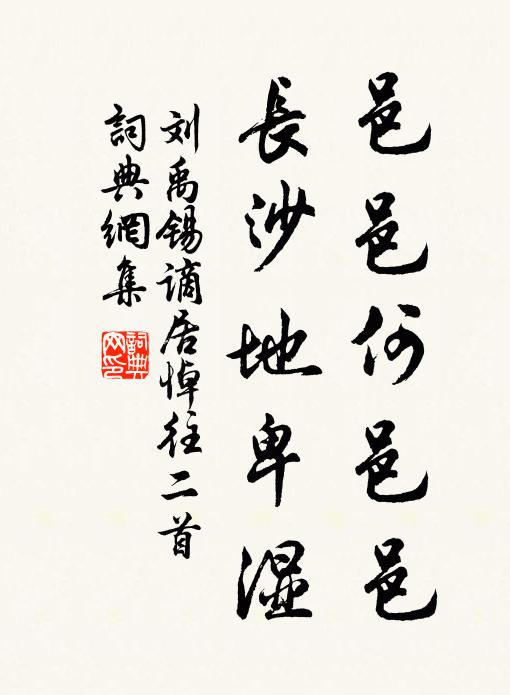 邑邑何邑邑
長沙地卑濕
刘禹锡谪居悼往二首
詞典網集
詞典網印